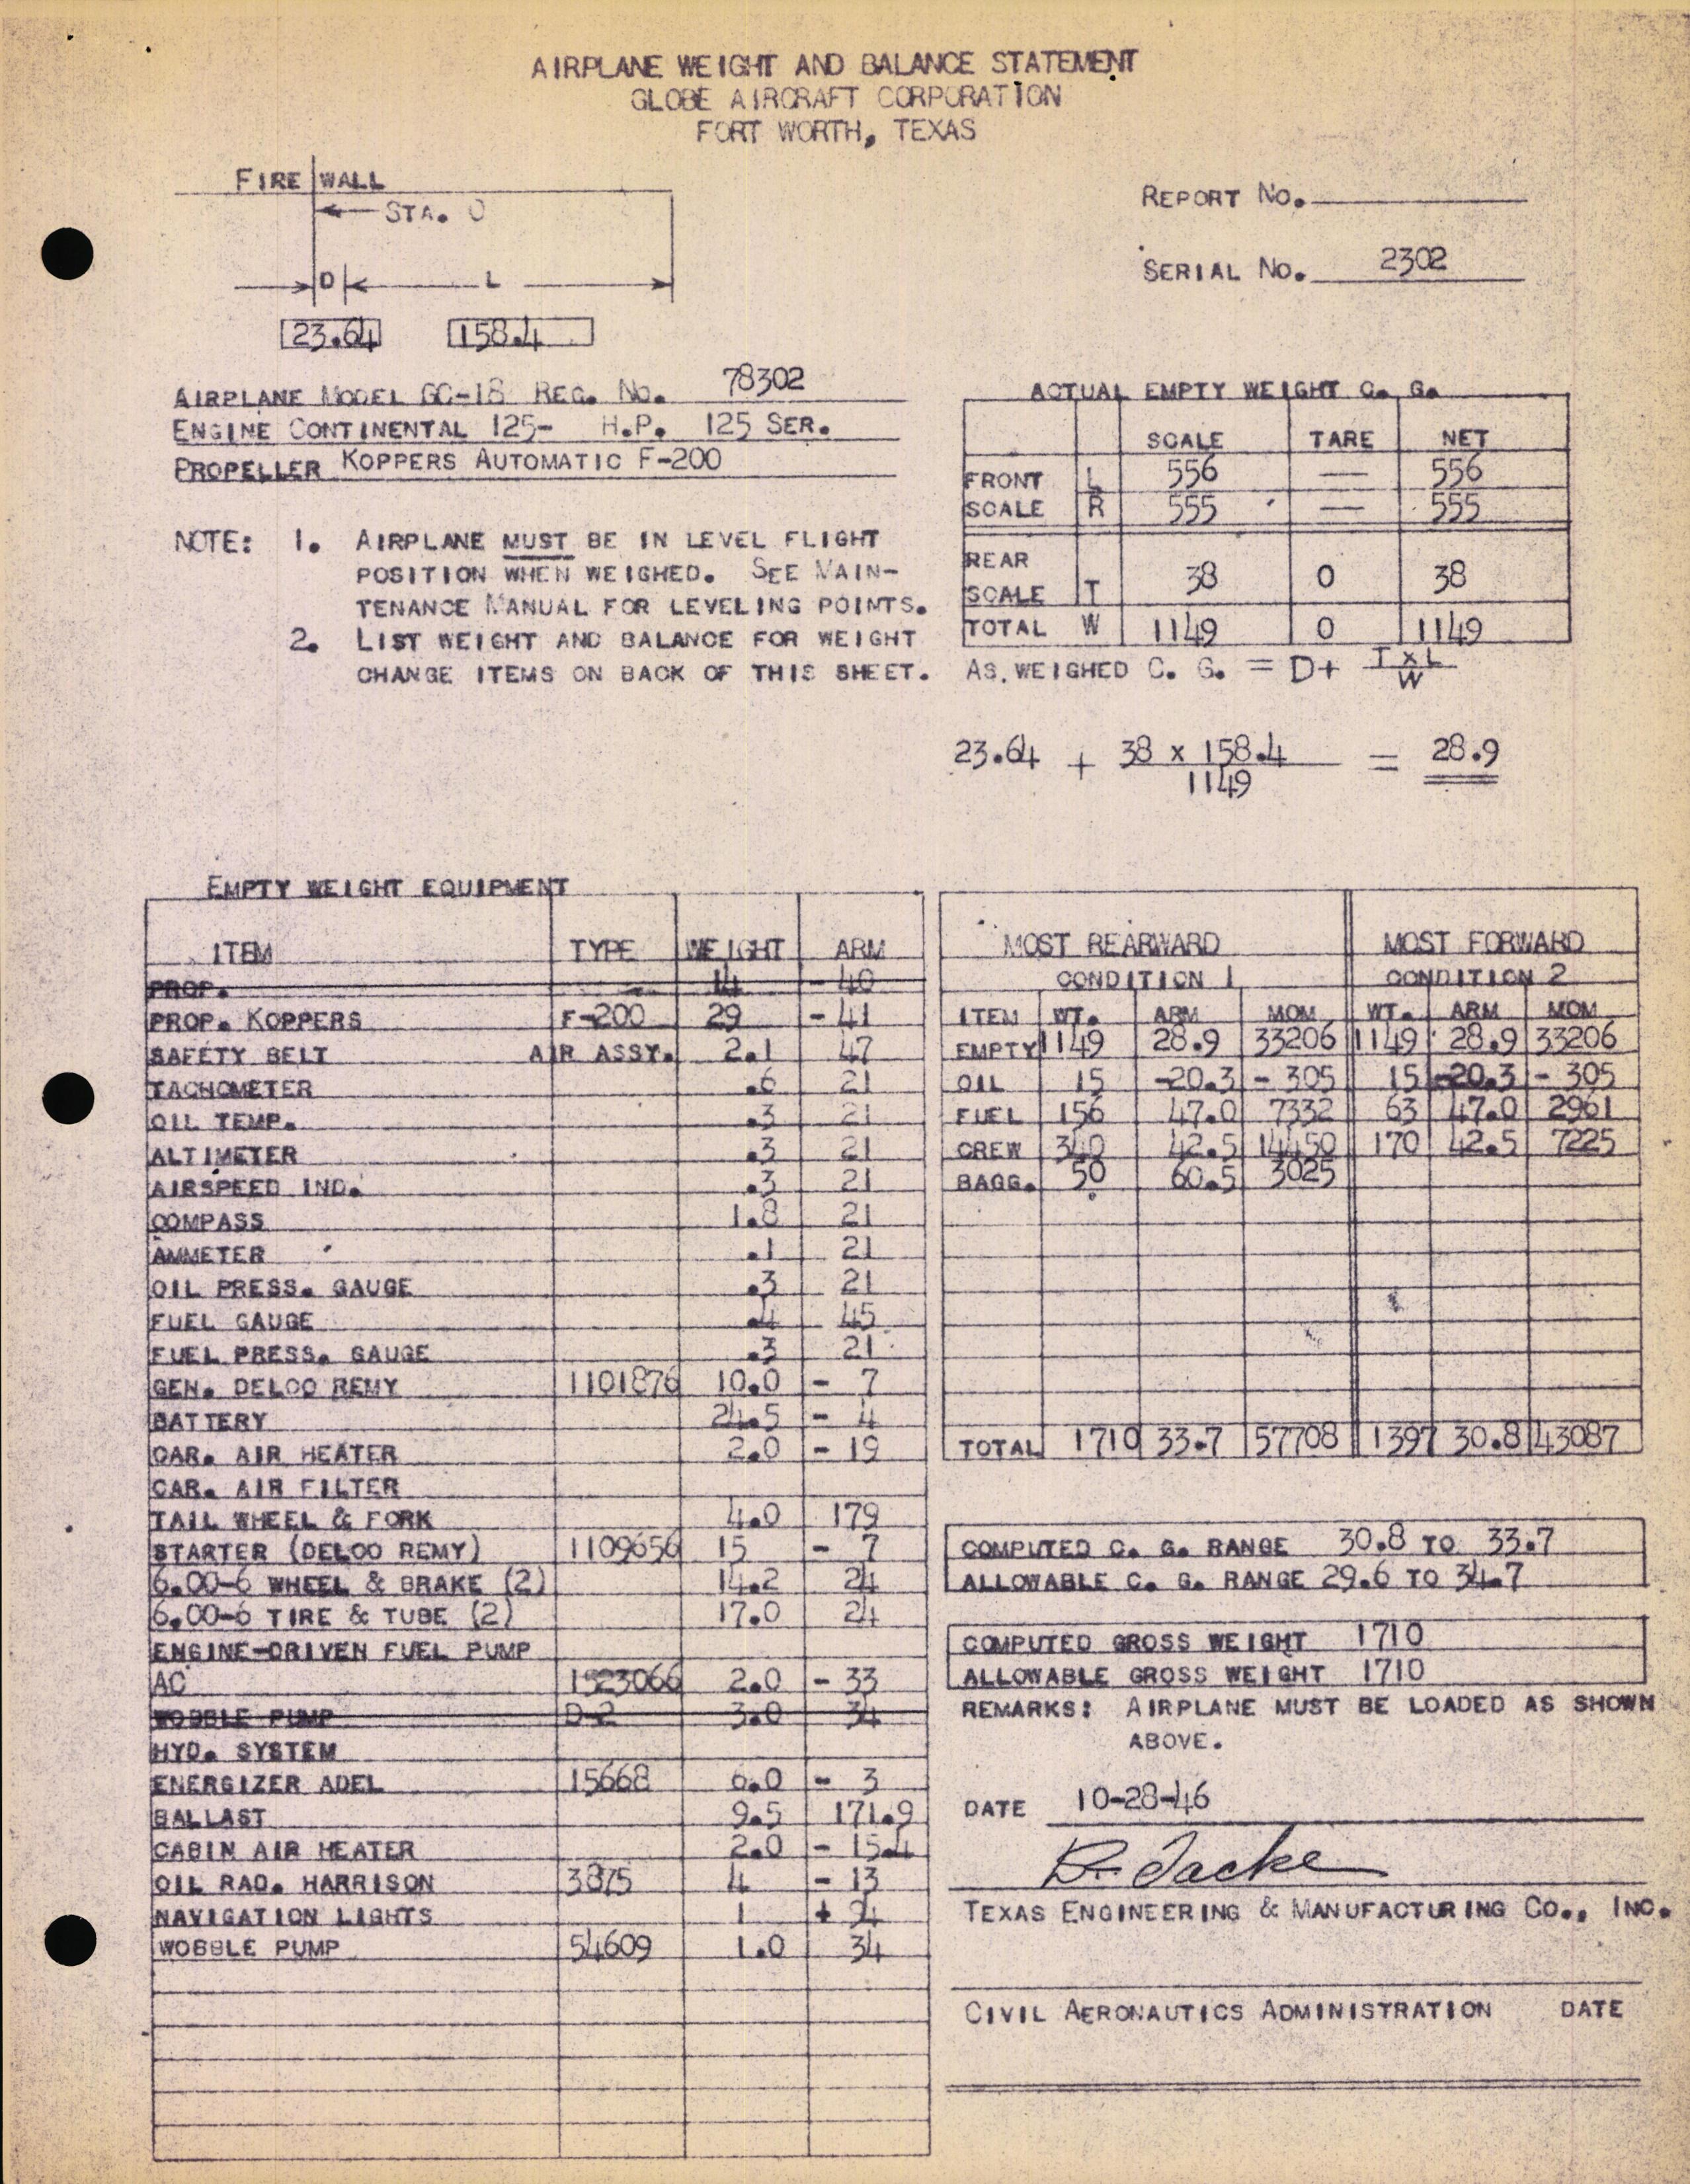 AIRPLANE WEIGHT AND BALANCE STATEMENT
GLOBE AIRCRAFT CORPORATION
FORT WORTH, TEXAS
FIRE WALL
STA. 0
D L
23.64 158.4
REPORT NO.
SERIAL NO. 2302
AIRPLANE MODEL GC-1B REG. NO. 78302
ENGINE CONTINENTAL 125- H.P. 125 SER.
PROPELLER KOPPERS AUTOMATIC F-200
NOTE: 1. AIRPLANE MUST BE IN LEVEL FLIGHT
POSITION WHEN WEIGHED. SEE MAIN-
TENANCE MANUAL FOR LEVELING POINTS.
2. LIST WEIGHT AND BALANCE FOR WEIGHT
CHANGE ITEMS ON BACK OF THIS SHEET.
ACTUAL EMPTY WEIGHT C. G.
SCALE TARE NET
FRONT L 556 — 556
SCALE R 555 — 555
REAR
SCALE T 38 0 38
TOTAL W 1149 0 1149
AS WEIGHED C. G. = D+ T x L
W
23.64 + 38 x 158.4 = 28.9
1149
EMPTY WEIGHT EQUIPMENT
ITEM TYPE WEIGHT ARM
PROP. 14 - 40
PROP. KOPPERS F-200 29 - 41
SAFETY BELT AIR ASSY. 2.1 47
TACHOMETER .6 21
OIL TEMP. .3 21
ALTIMETER .3 21
AIRSPEED IND. .3 21
COMPASS 1.8 21
AMMETER .1 21
OIL PRESS. GAUGE .3 21
FUEL GAUGE .4 45
FUEL PRESS. GAUGE .3 21
GEN. DELCO REMY 1101876 10.0 - 7
BATTERY 24.5 - 4
CAR. AIR HEATER 2.0 - 19
CAR. AIR FILTER
TAIL WHEEL & FORK 4.0 179
STARTER (DELCO REMY) 1109656 15 - 7
6.00-6 WHEEL & BRAKE (2) 14.2 24
6.00-6 TIRE & TUBE (2) 17.0 24
ENGINE-DRIVEN FUEL PUMP
AC 1523066 2.0 - 33
WOBBLE PUMP D-2 3.0 34
HYD. SYSTEM
ENERGIZER ADEL 15668 6.0 - 3
BALLAST 9.5 171.9
CABIN AIR HEATER 2.0 - 15.4
OIL RAD. HARRISON 3875 4 - 13
NAVIGATION LIGHTS 1 +
WOBBLE PUMP 54609 1.0 34
MOST REARWARD MOST FORWARD
CONDITION 1 CONDITION 2
ITEM WT. ARM MOM WT. ARM MOM
EMPTY 1149 28.9 33206 1149 28.9 33206
OIL 15 -20.3 - 305 15 -20.3 - 305
FUEL 156 47.0 7332 63 47.0 2961
CREW 340 42.5 14450 170 42.5 7225
BAGG. 50 60.5 3025
TOTAL 1710 33.7 57708 1397 30.8 43087
COMPUTED C. G. RANGE 30.8 TO 33.7
ALLOWABLE C. G. RANGE 29.6 TO 34.7
COMPUTED GROSS WEIGHT 1710
ALLOWABLE GROSS WEIGHT 1710
REMARKS: AIRPLANE MUST BE LOADED AS SHOWN
ABOVE.
DATE 10-28-46
TEXAS ENGINEERING & MANUFACTURING CO., INC.
CIVIL AERONAUTICS ADMINISTRATION DATE